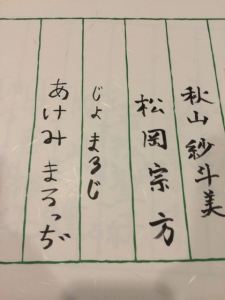 秋山紗斗美
松岡宗方
じょまろじ
あけみまろっぢ